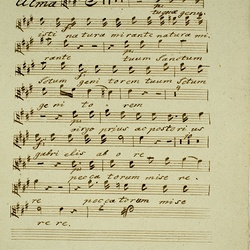 Alma tuquae genu
isti natura mirante natura mi
rante tuum Sanctum
Sotum geni torem tuum Sotum
geni to rem
virgo prius ac posteri us
gabri elis ab o re
peccatorum mise re
re peccatorum mise
re re.